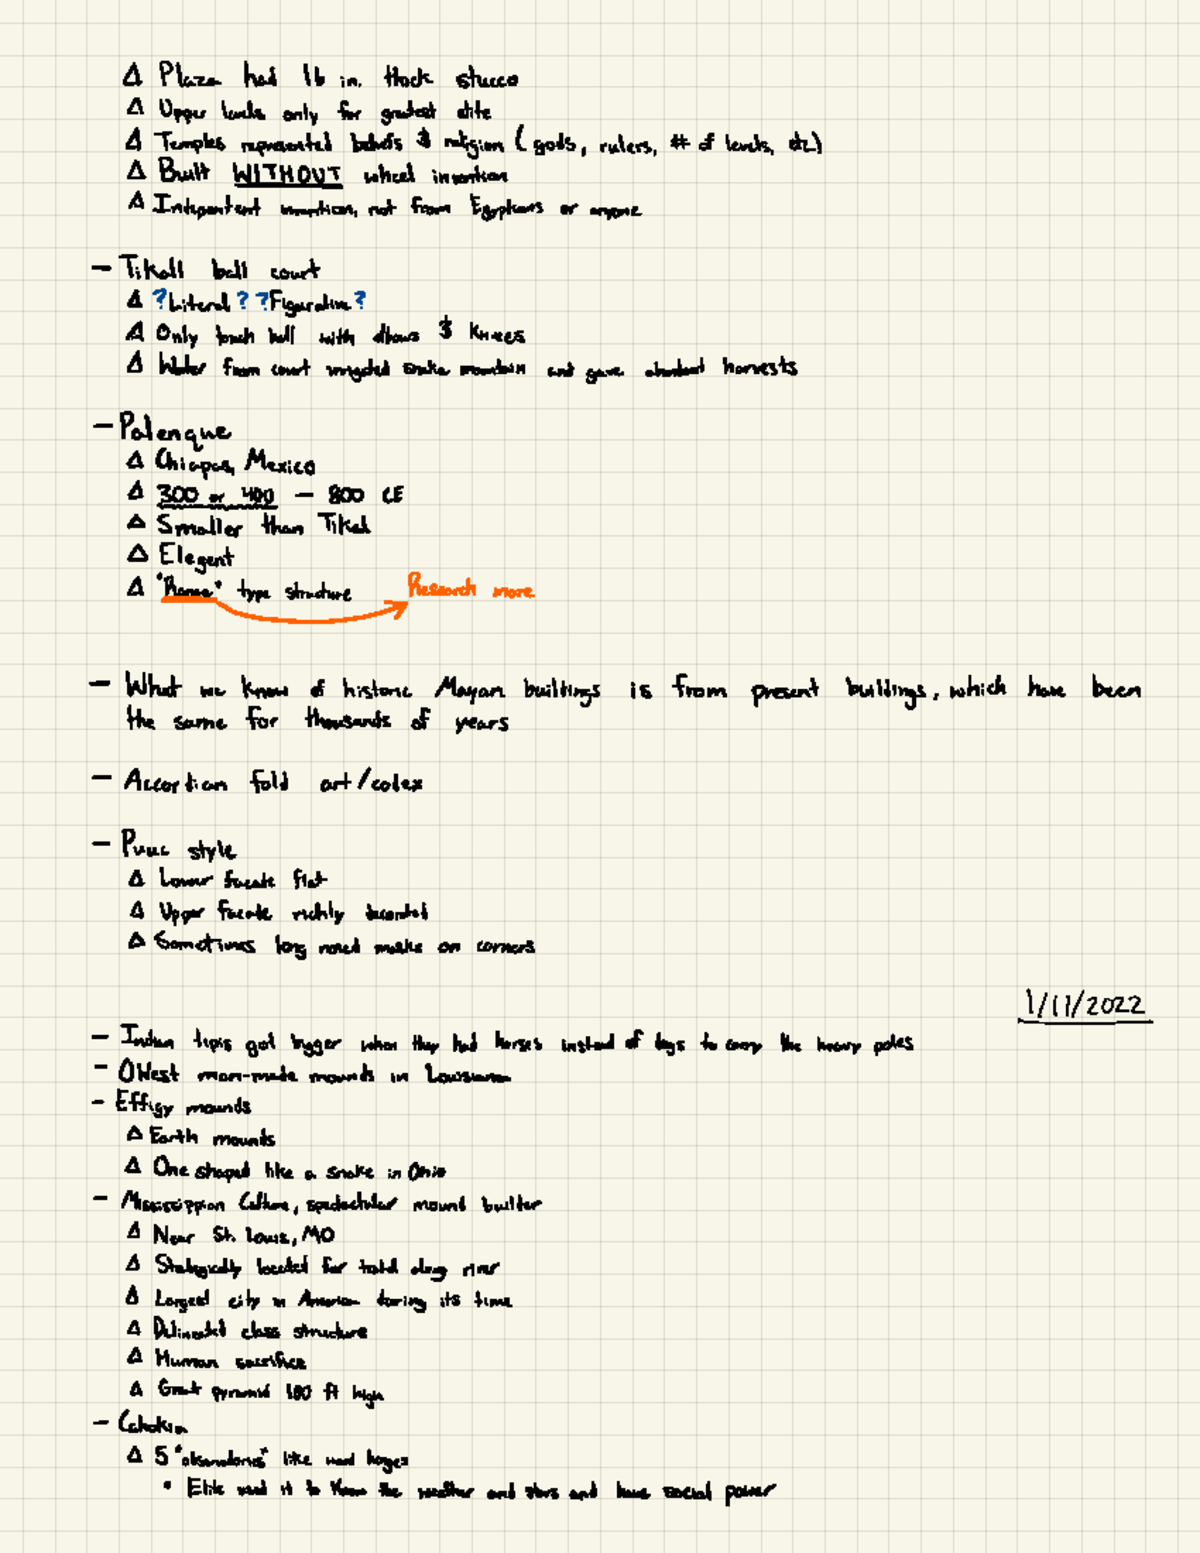 Δ Plaza had 16 in. thick stucco
Δ Upper levels only for greatest elite
Δ Temples represented beliefs & religion (gods, rulers, # of levels, etc)
Δ Built WITHOUT wheel invention
Δ Independent invention, not from Egyptians or anyone
- Tikall ball court
Δ ?Literal? ?Figurative?
Δ Only touch ball with elbows & knees
Δ Water from court irrigated snake mountain and gave abundant harvests
- Palenque
Δ Chiapas, Mexico
Δ 300 or 400 - 800 CE
Δ Smaller than Tikal
Δ Elegant
Δ " " type structure Research more
- What we know of historic Mayan buildings is from present buildings, which have been
the same for thousands of years
- Accordian fold art/codex
- Puuc style
Δ Lower facade flat
Δ Upper facade richly decorated
Δ Sometimes long nosed masks on corners
1/11/2022
- Indian tipis got bigger when they had horses instead of dogs to carry the heavy poles
- Oldest man-made mounds in Louisiana
- Effigy mounds
Δ Earth mounds
Δ One shaped like a snake in Ohio
- Mississippian Culture, spectactular mound builder
Δ Near St. Louis, MO
Δ Strategically located for along river
Δ Largest city in during its time
Δ Delineated class structure
Δ Human sacrifice
Δ Great pyramid 100 ft high
- Cahokia
Δ 5 "observatories" like wood henges
• Elite used it to know the weather and stars and have social power